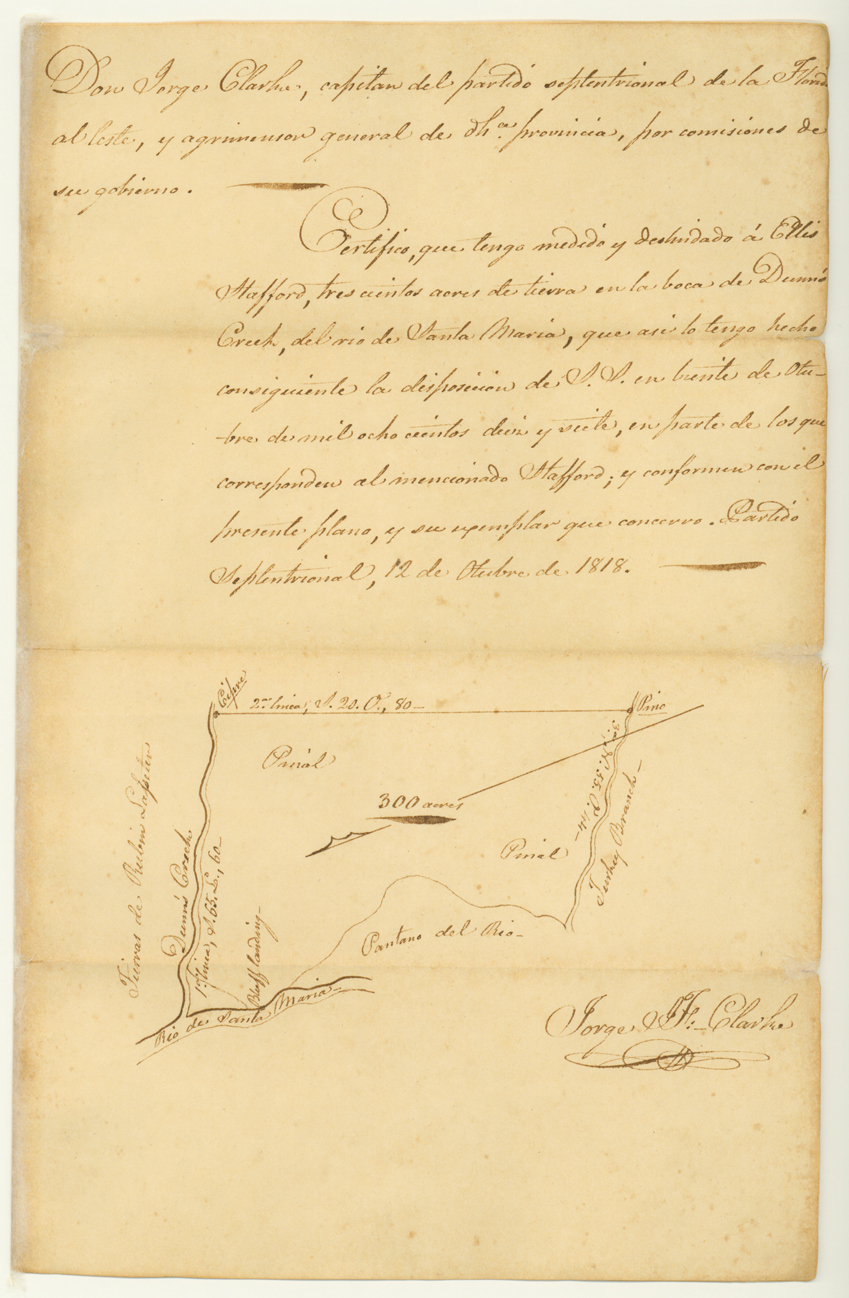 Don Jorge Clarke, capitan del partido septentrional de la Florida
al leste, y agrimensor general de dha. provincia, por comisiones de
su gobierno.
Certifico, que tengo medido y deslindado á Ellis
Stafford, tres cientos acres de tierra en la boca de Dunns
Creek, del rio de Santa Maria, que asi lo tengo hecho
consiguiente la disposicion de S. S. en veinte de Otu-
-bre de mil ocho cientos diez y siete, en parte de los que
corresponden al mencionado Stafford; y conformen con el
presente plano, y su exemplar que concerro. Partido
Septentrional, 12 de Otubre de 1818.
Cipres
2a. linea, S. 20. O., 80
Pino
Pinál
300 acres
Pinál
Turkey Branch
Tierras de Rubin
Dunns Creek
1a. linea, S. 65. E., 60
Bluff landing
Pantano del Rio
Rio de Santa Maria
Jorge J. F. Clarke